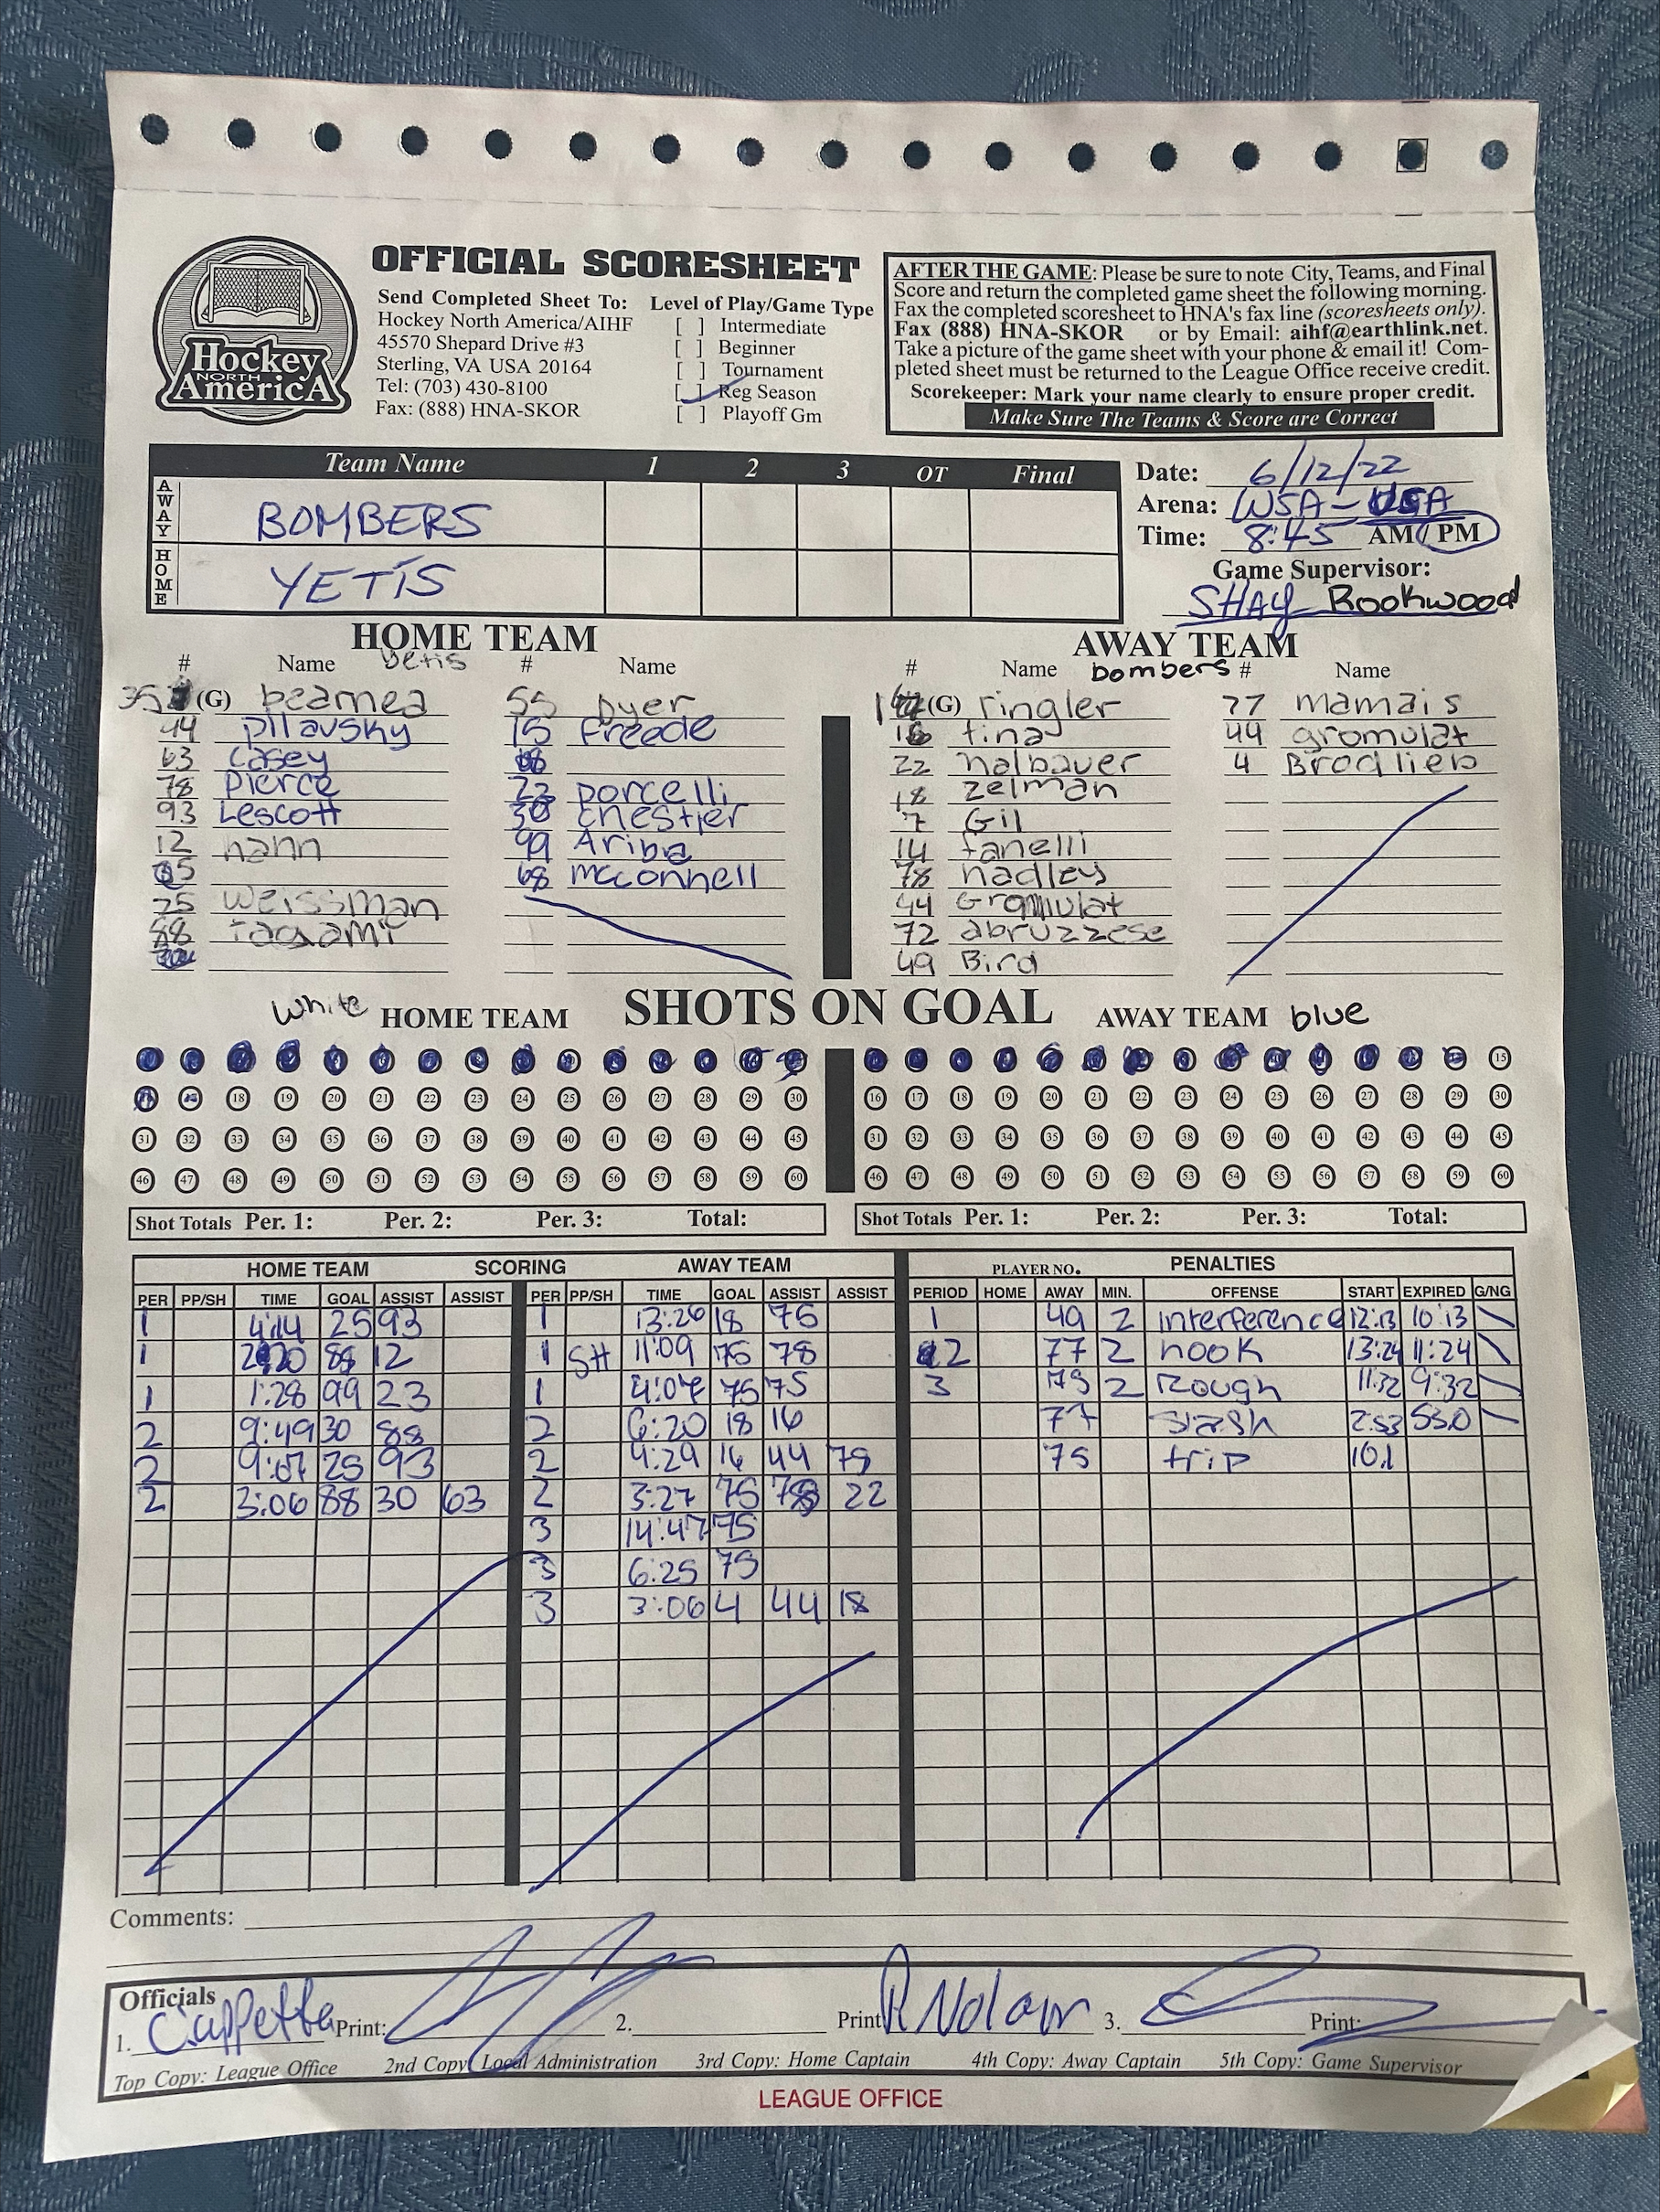 OFFICIAL SCORESHEET
Hockey
NORTH
AmericA
Send Completed Sheet To:
Hockey North America/AIHF
45570 Shepard Drive #3
Sterling, VA USA 20164
Tel: (703) 430-8100
Fax: (888) HNA-SKOR
Level of Play/Game Type
[ ] Intermediate
[ ] Beginner
[ ] Tournament
[ ] Reg Season
[ ] Playoff Gm
AFTER THE GAME: Please be sure to note City, Teams, and Final
Score and return the completed game sheet the following morning.
Fax the completed scoresheet to HNA's fax line (scoresheets only).
Fax (888) HNA-SKOR or by Email: aihf@earthlink.net.
Take a picture of the game sheet with your phone & email it! Com-
pleted sheet must be returned to the League Office receive credit.
Scorekeeper: Mark your name clearly to ensure proper credit.
Make Sure The Teams & Score are Correct
Team Name 1 2 3 OT Final
AWAY BOMBERS
HOME YETIS
Date: 6/12/22
Arena: WSA - USA
Time: 8:45 AM/PM
Game Supervisor:
SHAY Rookwood
HOME TEAM
# Name Yetis # Name
35 (G) beamea 55 Dyer
44 Pilavsky 15 Freede
63 Casey
78 Pierce 23 porcelli
93 Lescott 30 Chestler
12 hann 99 Ariba
68 mcconnell
25 Weissman
88 Tagami
AWAY TEAM
# Name bombers # Name
(G) ringler 77 mamais
16 tina 44 gromulat
22 halbauer 4 Brodlieb
18 zelman
7 Gil
14 fanelli
78 hadley
44 Gromulat
72 abruzzese
49 Bird
SHOTS ON GOAL
White HOME TEAM
AWAY TEAM blue
18 19 20 21 22 23 24 25 26 27 28 29 30
31 32 33 34 35 36 37 38 39 40 41 42 43 44 45
46 47 48 49 50 51 52 53 54 55 56 57 58 59 60
15
16 17 18 19 20 21 22 23 24 25 26 27 28 29 30
31 32 33 34 35 36 37 38 39 40 41 42 43 44 45
46 47 48 49 50 51 52 53 54 55 56 57 58 59 60
Shot Totals Per. 1: Per. 2: Per. 3: Total:
Shot Totals Per. 1: Per. 2: Per. 3: Total:
HOME TEAM SCORING AWAY TEAM
PER PP/SH TIME GOAL ASSIST ASSIST
1 4:14 25 93
1 2:20 88 12
1 1:28 99 23
2 9:49 30 88
2 9:07 25 93
2 3:06 88 30 63
PER PP/SH TIME GOAL ASSIST ASSIST
1 13:26 18 75
1 SH 11:09 75 78
1 4:07 75 75
2 6:20 18 16
2 4:29 16 44 75
2 3:27 75 78 22
3 14:47 75
3 6:25 75
3 3:06 4 44 18
PLAYER NO. PENALTIES
PERIOD HOME AWAY MIN. OFFENSE START EXPIRED G/NG
1 49 2 interference 12:13 10:13
2 77 2 hook 13:24 11:24
3 75 2 Rough 11:32 9:32
77 slash 2:53 53.0
75 trip 10.1
Comments:
Officials
1. Cappetta Print: 2. Print R Nolan 3. Print:
Top Copy: League Office 2nd Copy: Local Administration 3rd Copy: Home Captain 4th Copy: Away Captain 5th Copy: Game Supervisor
LEAGUE OFFICE